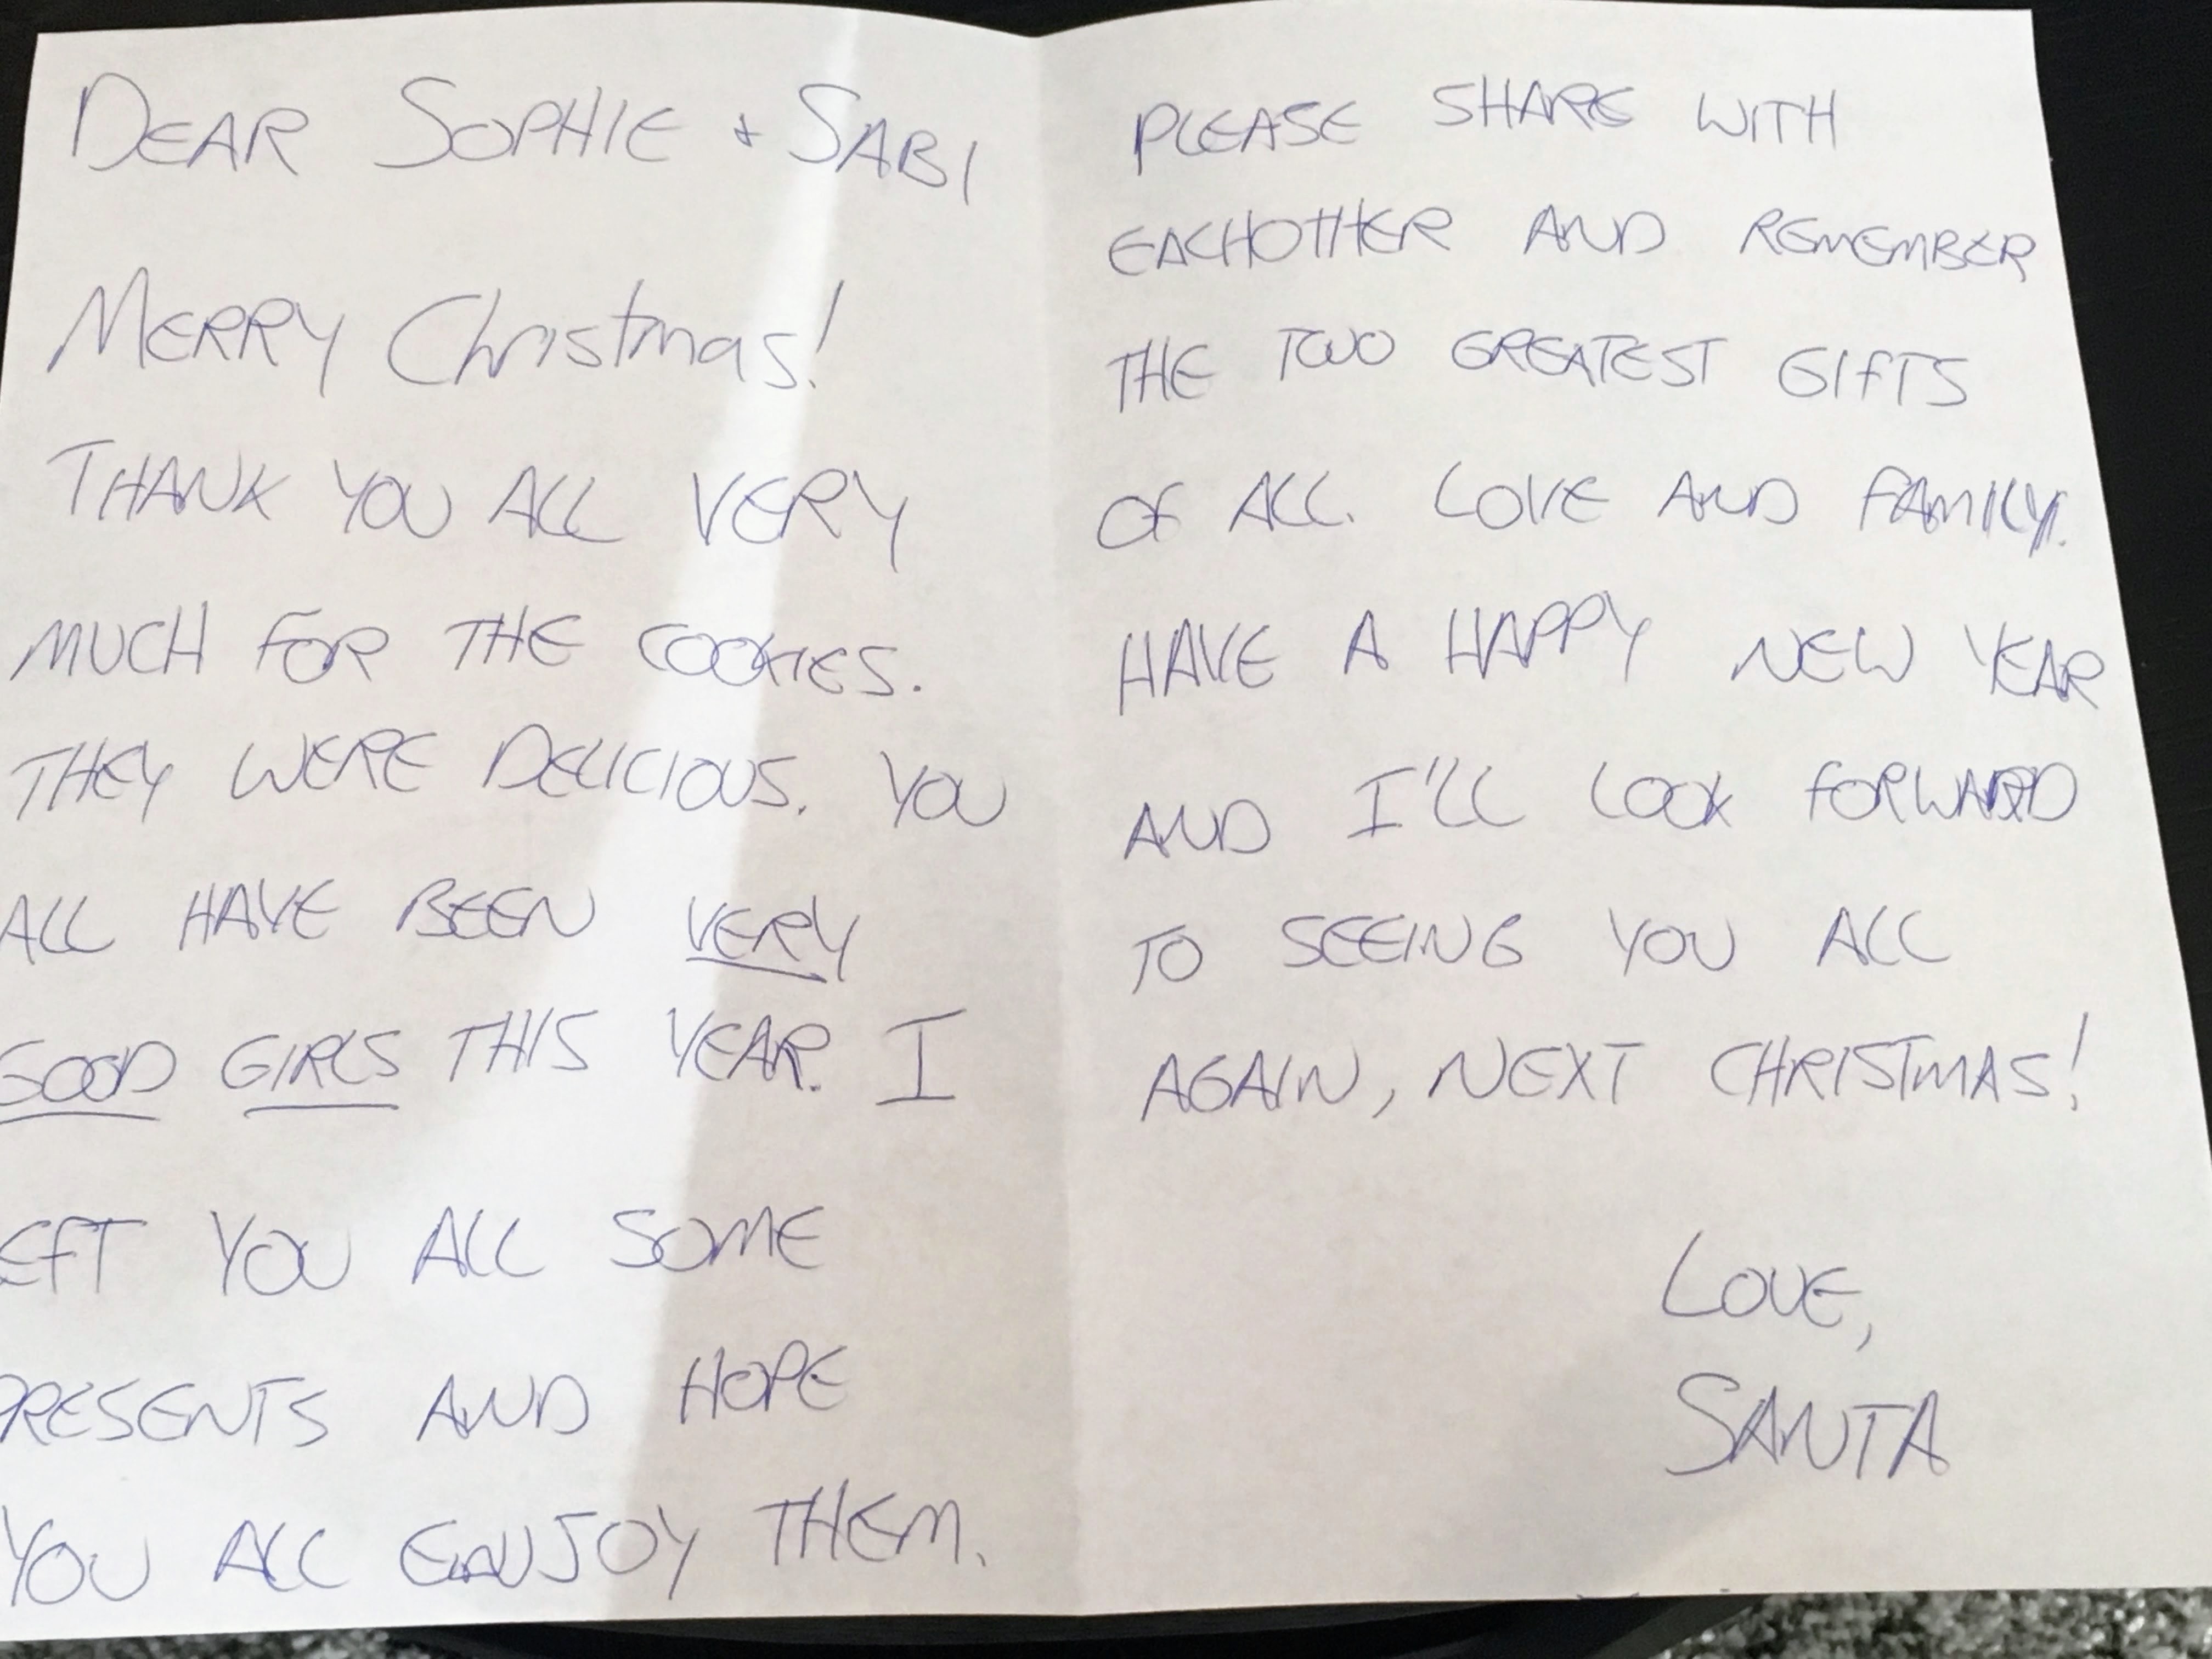 DEAR SOPHIE + SABI
MERRY Christmas!
THANK YOU ALL VERY
MUCH FOR THE COOKIES.
THEY WERE DELICIOUS. YOU
ALL HAVE BEEN VERY
GOOD GIRLS THIS YEAR. I
EFT YOU ALL SOME
PRESENTS AND HOPE
YOU ALL ENJOY THEM.
PLEASE SHARE WITH
EACHOTHER AND REMEMBER
THE TWO GREATEST GIFTS
OF ALL. LOVE AND FAMILY.
HAVE A HAPPY NEW YEAR
AND I'LL LOOK FORWARD
TO SEEING YOU ALL
AGAIN, NEXT CHRISTMAS!
LOVE,
SANTA